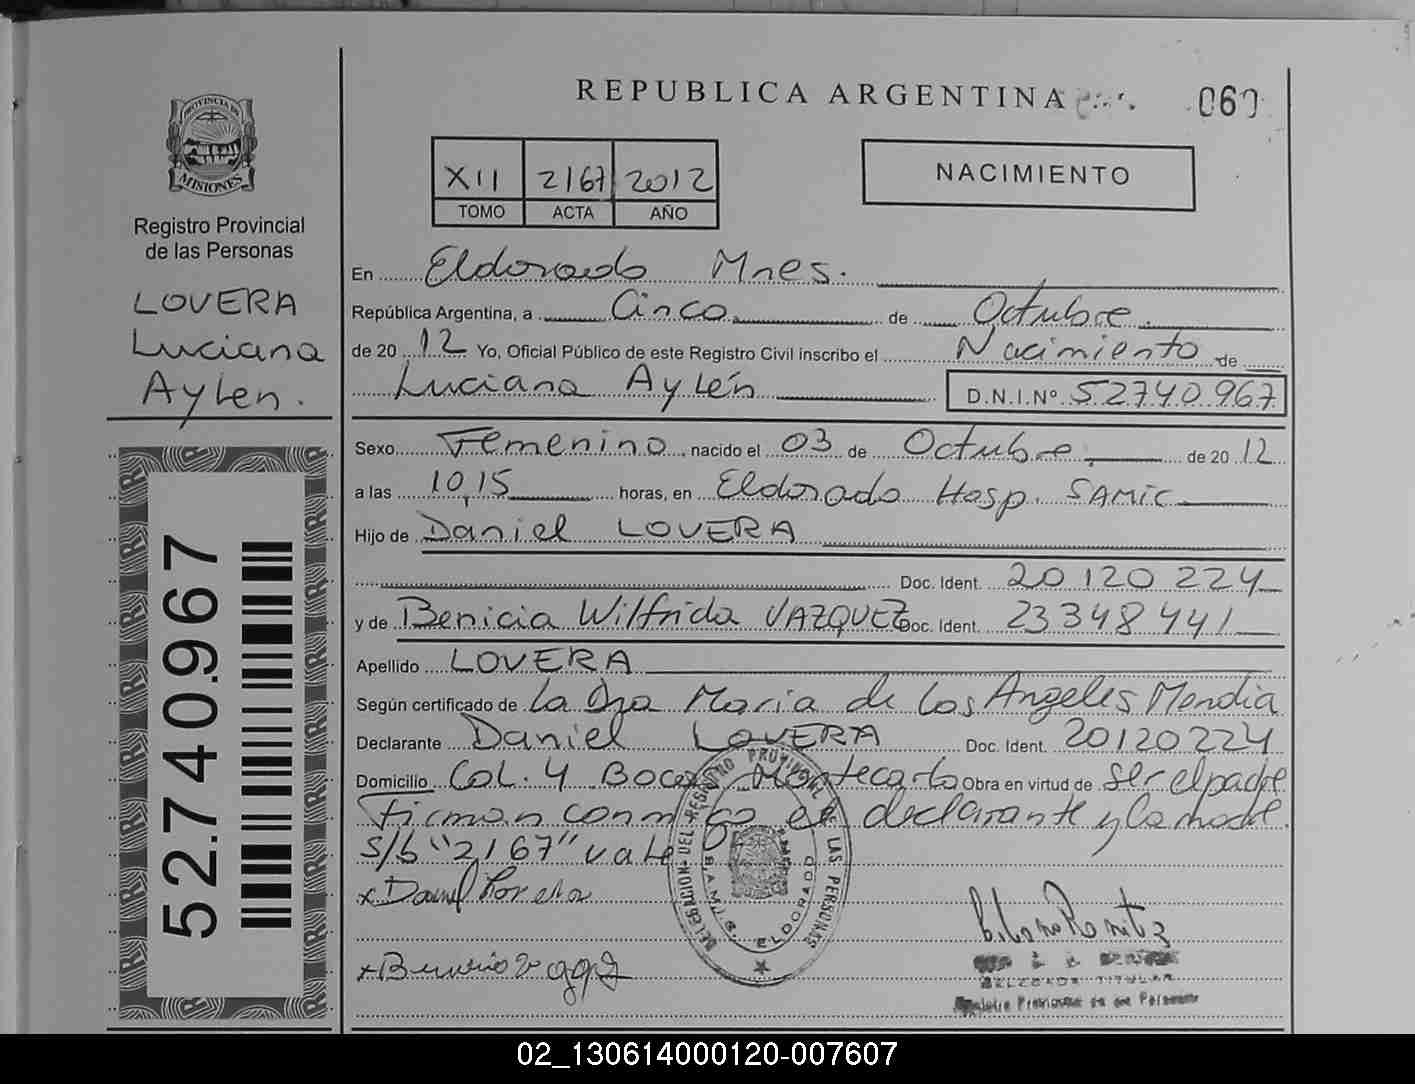 REPUBLICA ARGENTINA
060
PROVINCIA DE
MISIONES
Registro Provincial
de las Personas
LOVERA
Luciana
Aylen.
52.740.967
XII 2167 2012
TOMO ACTA AÑO
NACIMIENTO
En Eldorado Mnes.
República Argentina, a Cinco de Octubre
de 20 12 Yo, Oficial Público de este Registro Civil inscribo el Nacimiento de
Luciana Aylén D.N.I.Nº 52740967
Sexo Femenino, nacido el 03 de Octubre de 20 12
a las 10,15 horas, en Eldorado Hosp. SAMIC
Hijo de Daniel LOVERA
Doc. Ident. 20 120 224
y de Benicia Wilfrida VAZQUEZ Doc. Ident. 23 348 441
Apellido LOVERA
Según certificado de la Dra Maria de Los Angeles Mendia
Declarante Daniel LOVERA Doc. Ident. 20120224
Domicilio Col. 4 Bocas Montecarlo Obra en virtud de ser el padre
Firman conmigo el declarante y la madre.
s/b "2167" vale
x Daniel Lovera
DELEGACION DEL REGISTRO PROVINCIAL DE LAS PERSONAS
ELDORADO
DELEGADA TITULAR
Registro Provincial de las Personas
02_130614000120-007607